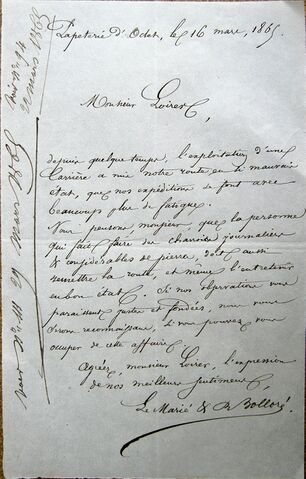 Papeterie d'Odet, le 16 mars, 1865.
Monsieur Loirer,
depuis quelque temps, l'exploitation d'une
carrière a mis notre route en si mauvais
état, que nos expéditions se font avec
beaucoup plus de fatigue.
Nous pensons, monsieur, que la personne
qui fait faire des charrois journaliers
& considérables de pierre, doit aussi
remettre la route, et même l'entretenir
en bon état. Si nos observations vous
paraissent justes et fondées, nous vous
serons reconnaissants, si vous pouvez vous
occuper de cette affaire.
Agréez, monsieur Loirer, l'expression
de nos meilleurs sentiments,
Le Marié & R Bolloré
24 Mars 1865
22 mars 1865